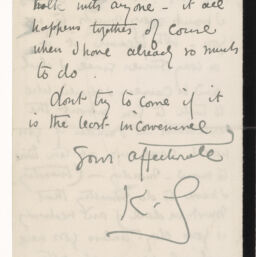 talk with anyone – it all
happens together of course
when I have already so much
to do.
dont try to come if it
is the least inconvenience
Yours affectionate
K. S